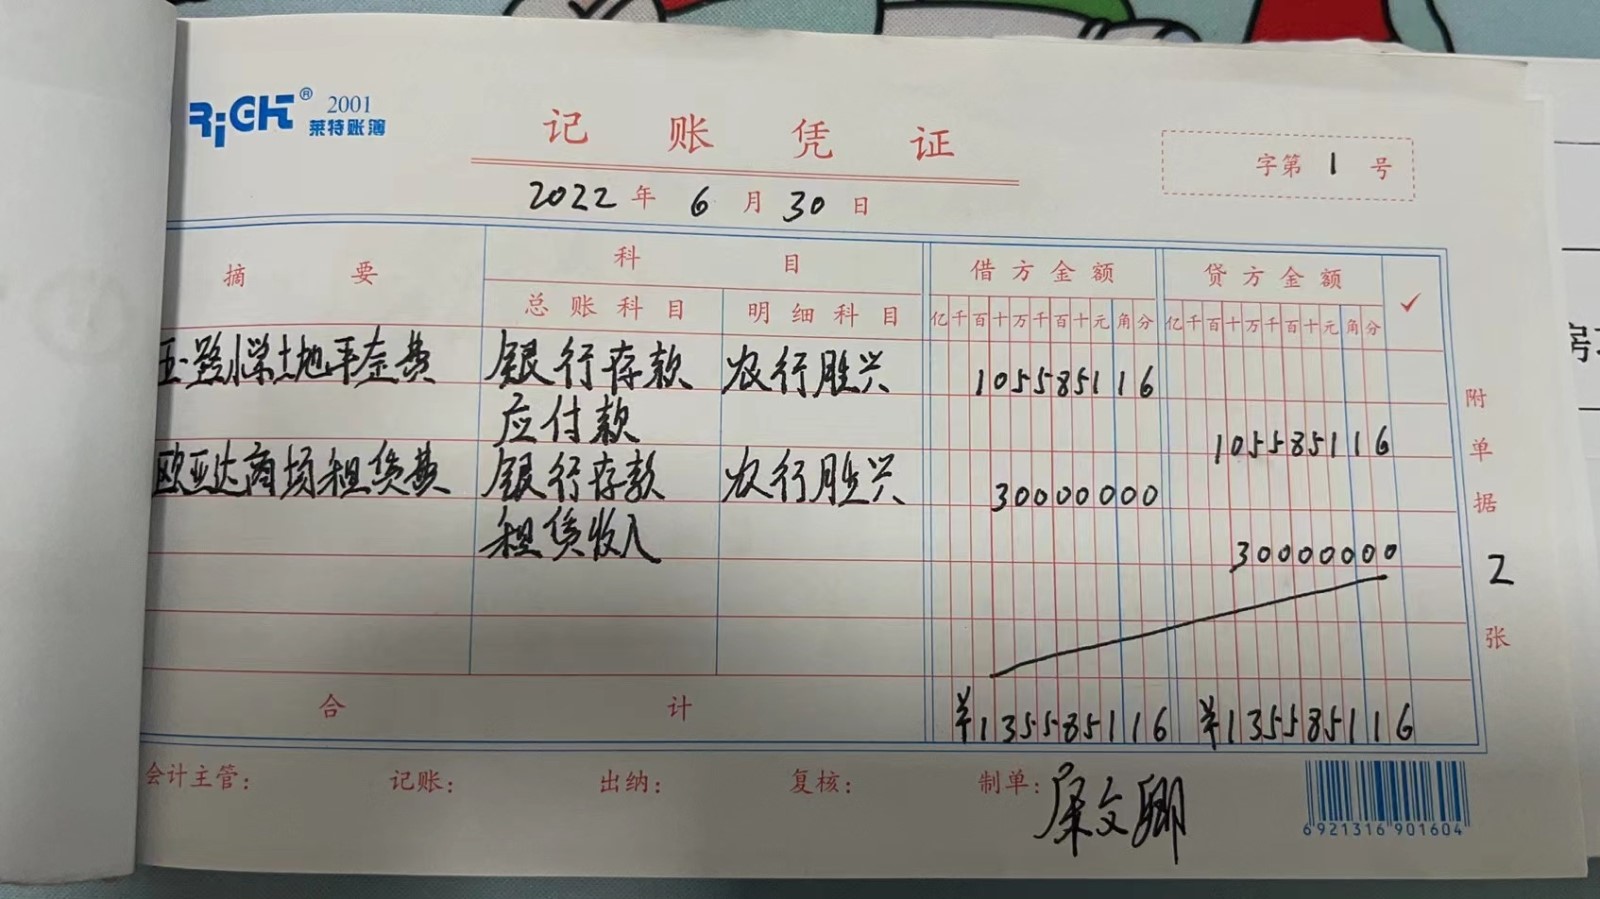 RiGHT® 2001
莱特账簿
记账凭证
字第 1 号
2022 年 6 月 30 日
摘要 科目 借方金额 贷方金额 ✓
总账科目 明细科目 亿千百十万千百十元角分 亿千百十万千百十元角分
五一路小学土地平奈费 银行存款 农行胜兴 105585116
应付款 105585116
欧亚达商场租赁费 银行存款 农行胜兴 30000000
租赁收入 30000000
合计 ¥135585116 ¥135585116
附单据 2 张
会计主管: 记账: 出纳: 复核: 制单: 屎文卿
6 921316 901604
房